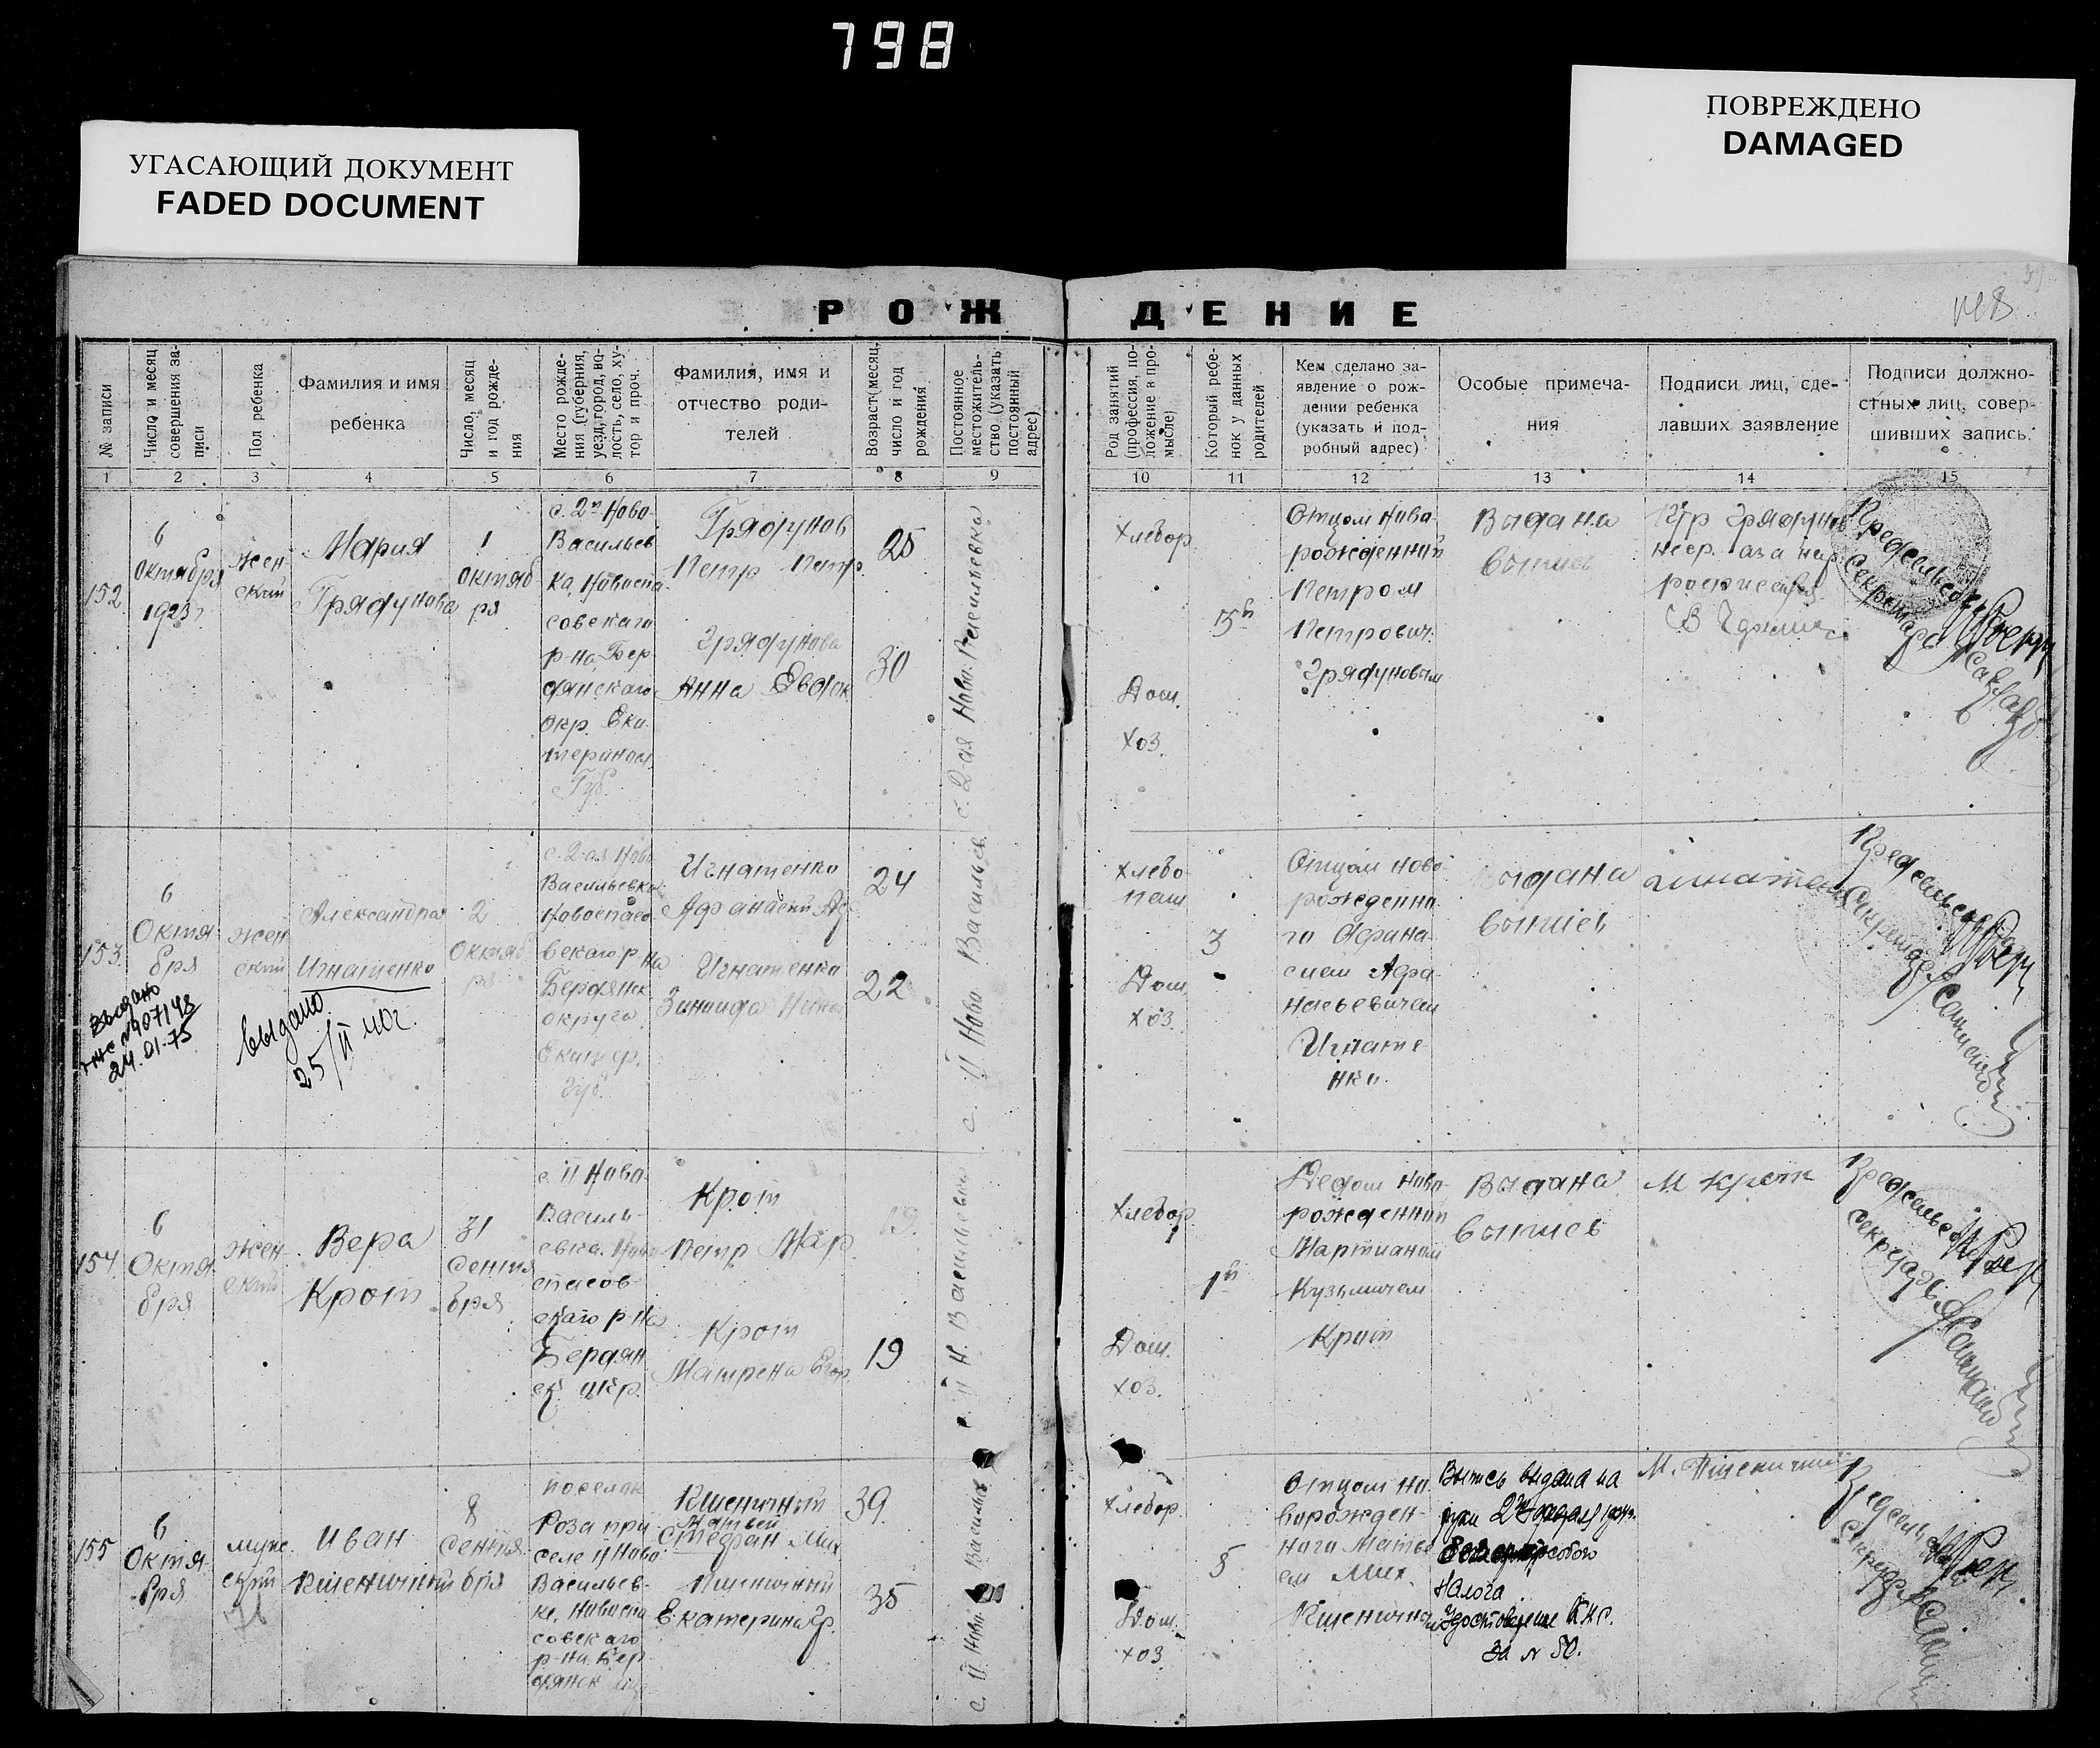 798
УГАСАЮЩИЙ ДОКУМЕНТ
FADED DOCUMENT
ПОВРЕЖДЕНО
DAMAGED
РОЖДЕНИЕ
№ записи
Число и месяц совершения за-
писи
Пол ребенка
Фамилия и имя
ребенка
Число, месяц
и год рожде-
ния
Место рожде-
ния (губерния,
уезд, город, во-
лость, село, ху-
тор и проч.
Фамилия, имя и
отчество роди-
телей
Возраст (месяц,
число и год
рождения
Постоянное
местожитель-
ство (указать
постоянный
адрес)
Род занятий
(профессия, по-
ложение в про-
мысле)
Который ребе-
нок у данных
родителей
Кем сделано за-
явление о рож-
дении ребенка
(указать и под-
робный адрес)
Особые примеча-
ния
Подписи лиц, сде-
лавших заявление
Подписи должно-
стных лиц, совер-
шивших запись.
1 2 3 4 5 6 7 8 9 10 11 12 13 14 15
152
6
Октября
1923 г.
жен
ский
Мария
Грядунова
1
Октяб
ря
с. 2я Ново-
Васильев
ка, Новоспа-
совского
р-на, Бер-
дянскаго
Окр. Ека-
теринос.
Губ.
Грядунов
Петр Петр.
Грядунова
Анна Евдок
25
30
с. 2-ая Ново-Васильевка
Хлебор
Дом.
хоз.
5й
Отцом ново
рожденной
Петром
Петрович.
Грядуновым
Выдана
выпись
153
6
Октя-
бря
жен
ский
Александра
Игнатенко
2
Октяб
ря
с. 2-ая Ново-
Васильевка
Новоспасо-
вскаго р-на
Бердянск
округа
Екатер.
губ.
Игнатенко
Афанасий Аф
Игнатенко
Зинаида
24
22
с. II Ново Васильев.
Хлебо
паш
Дом
хоз.
3
Отцом ново-
рожденно
го Афана
сием Афа
насьевичем
Игнате-
нко.
Выдана
выпись
Игнатенко
выдано
24.01.75
выдано
25/II 40 г.
154
6
Октя
бря
жен-
ский
Вера
Крот
31
Сентя
бря
с. II Ново-
Василь-
евка. Ново
спасов-
скаго р-на
Бердян
ск. окр.
Крот
Петр Мар.
Крот
Матрена Егор
19
19
с. II Н. Васильевка
Хлебор
Дом.
хоз.
1й
Дедом Ново-
рожденной
Мартианом
Кузьмичем
Крот
Выдана
выпись
М Крот
Предсельсовета
Секретарь
155
6
Октя-
бря
муже
ский
Иван
Пшеничный
8
Сентя
бря
поселок
Роза при
селе II Ново
Васильев-
ке, Новоспа
совскаго
р-на Бер-
дянск
Пшеничный
Матвей
Стефан Мих
Пшеничный
Екатерина Гр.
39
35
с. II Ново Васильев
Хлебор.
Дом.
хоз
5
Отцом но-
ворожден-
наго Матве
ем Мих.
Пшеничным
Выпись выдана на
руки
налога
Удостоверение К.Н.С.
за № 50.
М. Пшеничный